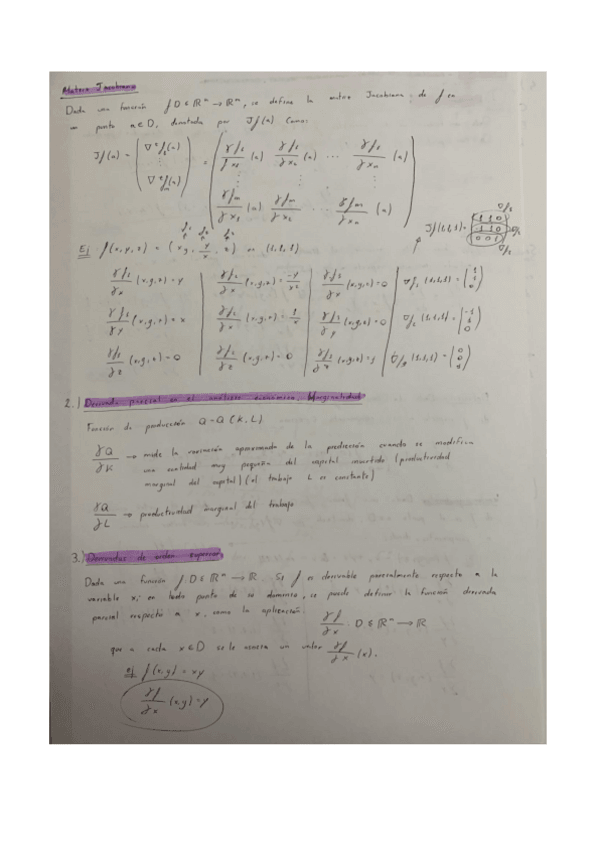 Matriz Jacobiana
Dada una función f D ⊆ ℝⁿ → ℝᵐ, se define la matriz Jacobiana de f en
un punto a ∈ D, denotada por Jf(a) como:
Jf(a) = (∇ᵗf₁(a) ⋮ ∇ᵗfₘ(a)) = (∂f₁/∂x₁ (a) ∂f₁/∂x₂ (a) ⋯ ∂f₁/∂xₙ (a)
⋮ ⋮ ⋮
∂fₘ/∂x₁ (a) ∂fₘ/∂x₂ (a) ⋯ ∂fₘ/∂xₙ (a))
Ej f(x,y,z) = (xy, y/x, z) en (1,1,1)
∂f₁/∂x (x,y,z) = y
∂f₁/∂y (x,y,z) = x
∂f₁/∂z (x,y,z) = 0
∂f₂/∂x (x,y,z) = -y/x²
∂f₂/∂y (x,y,z) = 1/x
∂f₂/∂z (x,y,z) = 0
(x,y,z) = 0
(x,y,z) = 0
(x,y,z) = 1
∇f₁ (1,1,1) = (1 1 0)
∇f₂ (1,1,1) = (-1 1 0)
(1,1,1) = (0 0 1)
Jf(1,1,1) =
1 1 0
1 1 0
0 0 1
2.) Derivada parcial en el análisis económico. Marginalidad
Función de producción Q=Q(K,L)
∂Q/∂K → mide la variación aproximada de la producción cuando se modifica
una cantidad muy pequeña del capital invertido (productividad
marginal del capital) (el trabajo L es constante)
∂Q/∂L → productividad marginal del trabajo
3.) Derivadas de orden superior
Dada una función f D ⊆ ℝⁿ → ℝ. Si f es derivable parcialmente respecto a la
variable xᵢ en cada punto de su dominio, se puede definir la función derivada
parcial respecto a x, como la aplicación.
∂f/∂x D ⊆ ℝⁿ → ℝ
que a cada x ∈ D se le asocia un valor ∂f/∂x (x).
ej f(x,y) = xy
∂f/∂x (x,y) = y